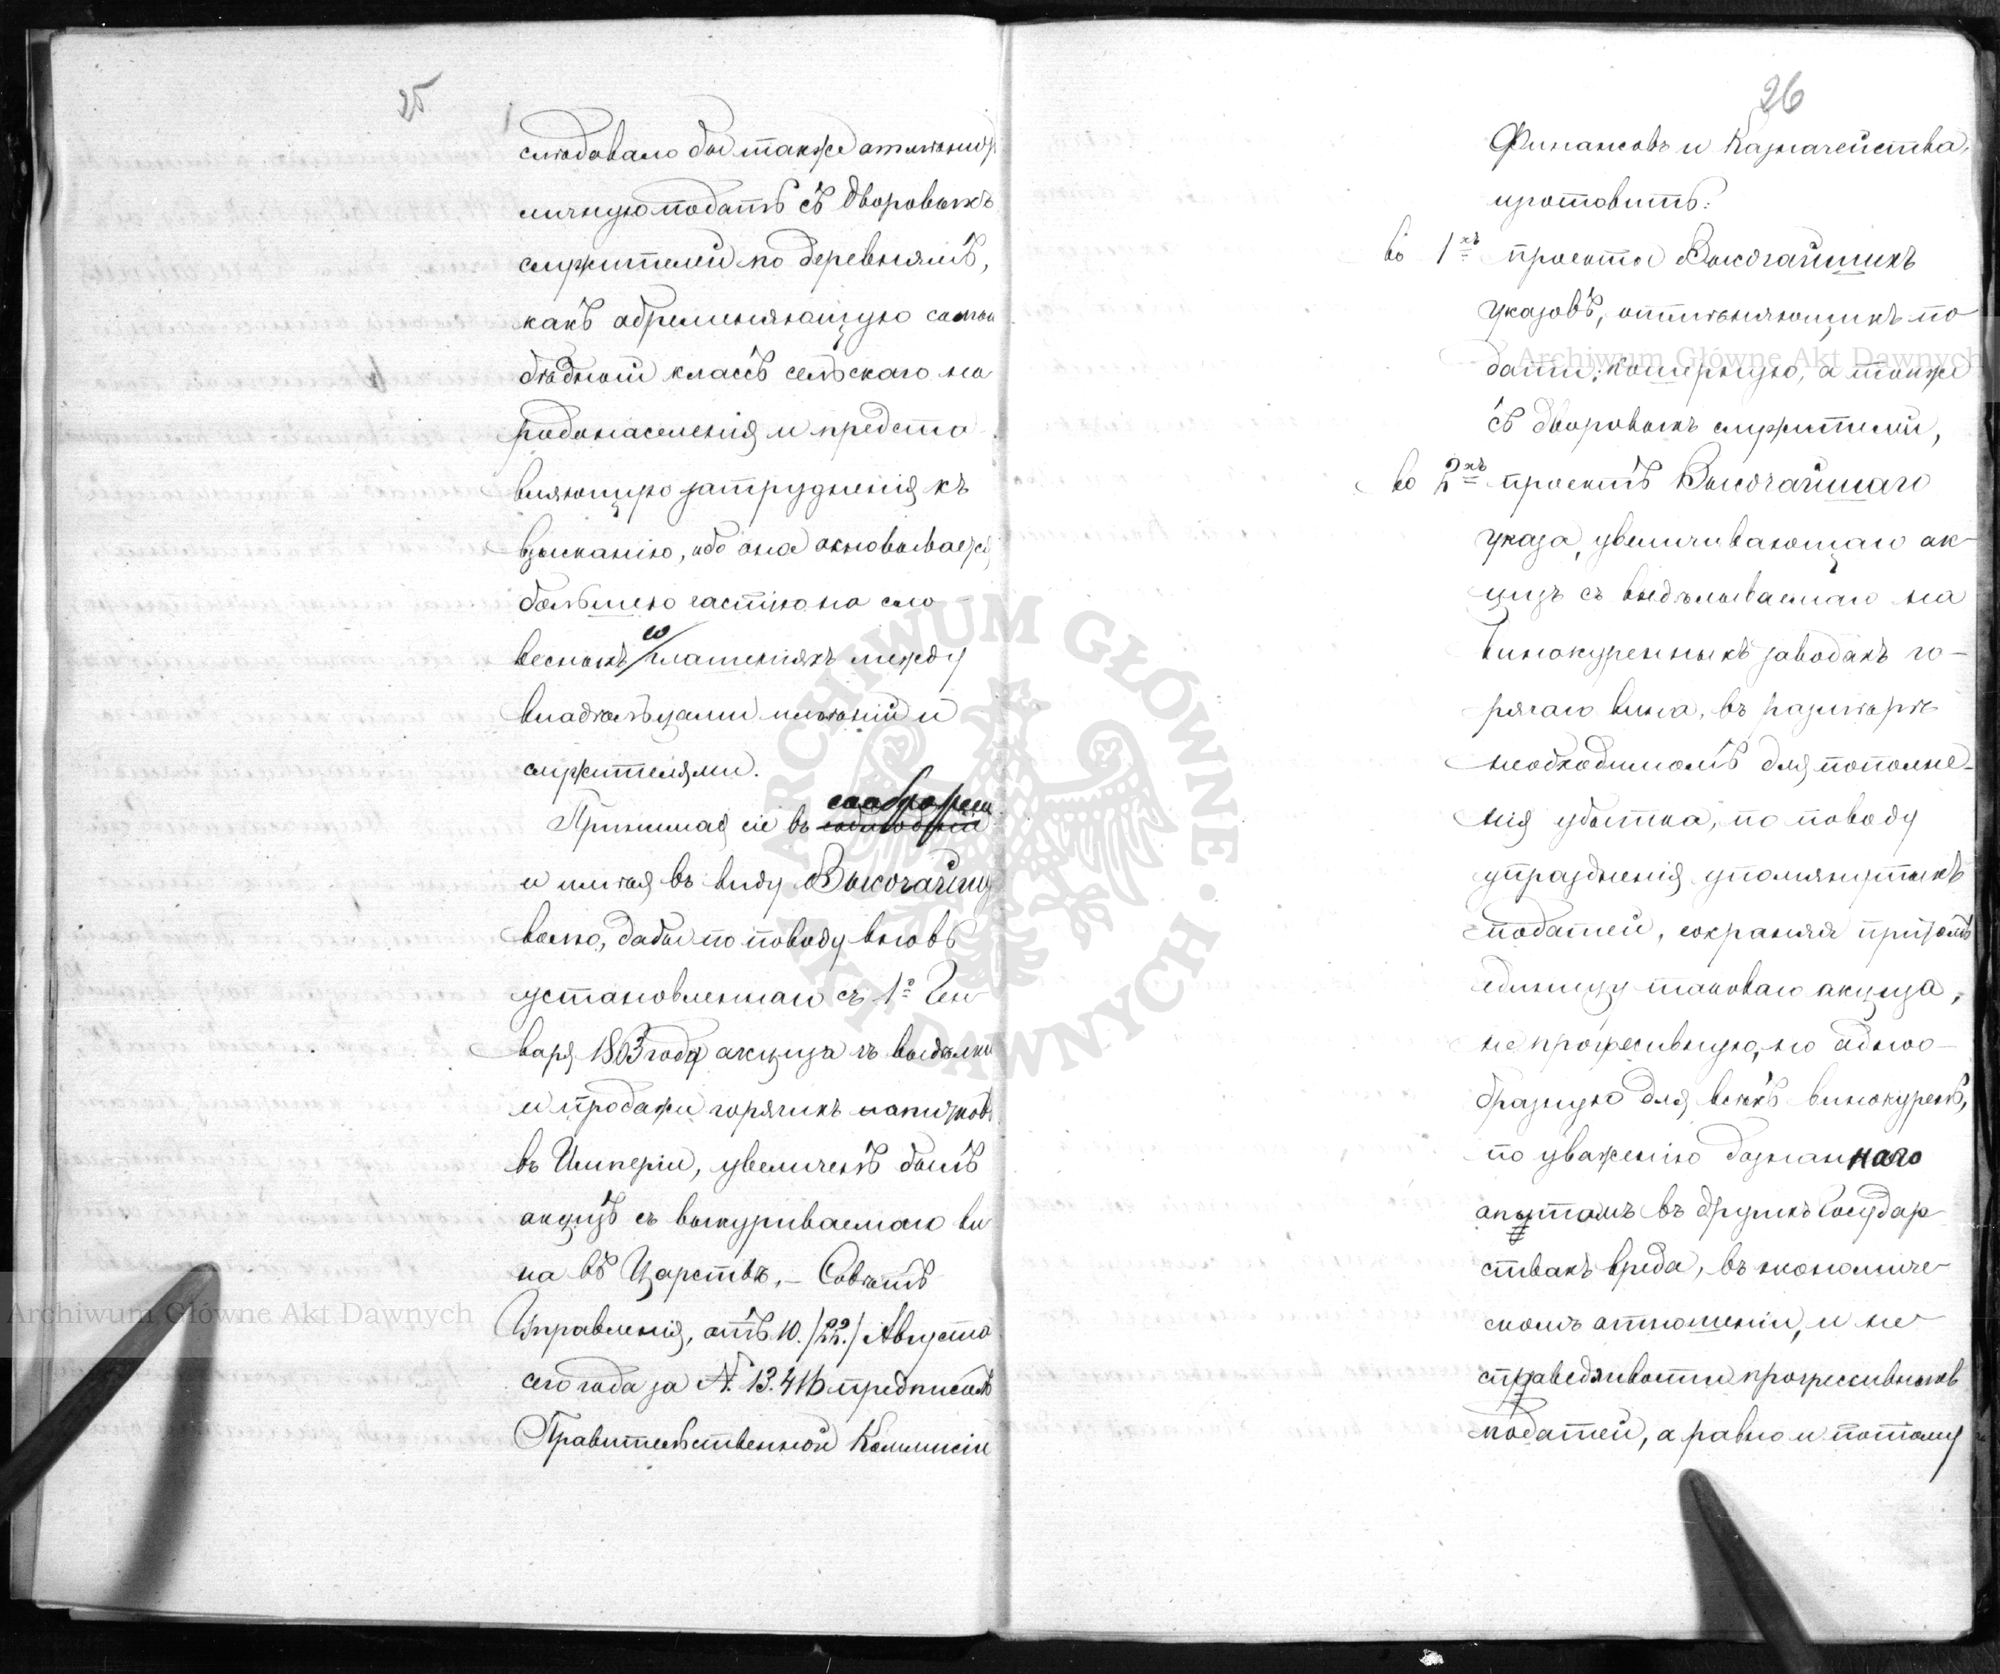 25
слѣдовало бы также отмѣнить
личную подать съ дворовыхъ
служителей по деревнямъ,
какъ обременяющую самый
бѣдной классъ сельскаго на
родонаселенія и предста
вляющую затрудненія къ
взысканію, ибо она основывается
большею частію на сло
весныхъ соглашеніяхъ между
владѣльцами имѣній и
служителями.
Принимая сіе въ соображеніе
и имѣя въ виду Высочайшую
волю, дабы по поводу вновь
установленнаго съ 1го Ген
варя 1863 года акциза съ выдѣлки
и продажи горячихъ напитковъ
въ Имперіи, увеличенъ былъ
акцизъ съ выкуриваемаго ви
на въ Царствѣ, – Совѣтъ
Управленія, отъ 10. /22./ Августа
сего года за №. 13.416 предписалъ
Правительственной Коммисіи
26
Финансовъ и Казначейства,
изготовить:
во 1хъ проекты Высочайшихъ
указовъ, отмѣняющихъ по
дати: кошерную, а также
съ дворовыхъ служителей,
во 2хъ проектъ Высочайшаго
указа, увеличивающаго ак
цизъ съ выдѣлываемаго на
винокуренныхъ заводахъ го–
рячаго вина, въ размѣрѣ
необходимомъ для пополне–
нія убытка, по поводу
упраздненія упомянутыхъ
податей, сохраняя притомъ
единицу таковаго акциза,
не прогресивную, но одноо–
бразную для всѣхъ винокурень,
по уваженію дознаннаго
опытомъ въ другихъ Государ
ствахъ вреда, въ экономиче
скомъ отношеніи, и не
справедливости прогрессивныхъ
податей, а равно и потому
Archiwum Główne Akt Dawnych
Archiwum Główne Akt Dawnych
ARCHIWUM GŁÓWNE AKT DAWNYCH